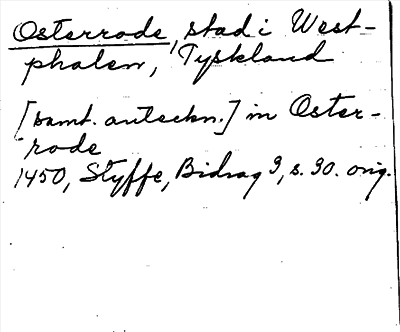 Osterrode, stad i West-
phalen, Tyskland
[samt. anteckn.] in Oster-
rode
1450, Styffe, Bidrag 3, s. 30. orig.